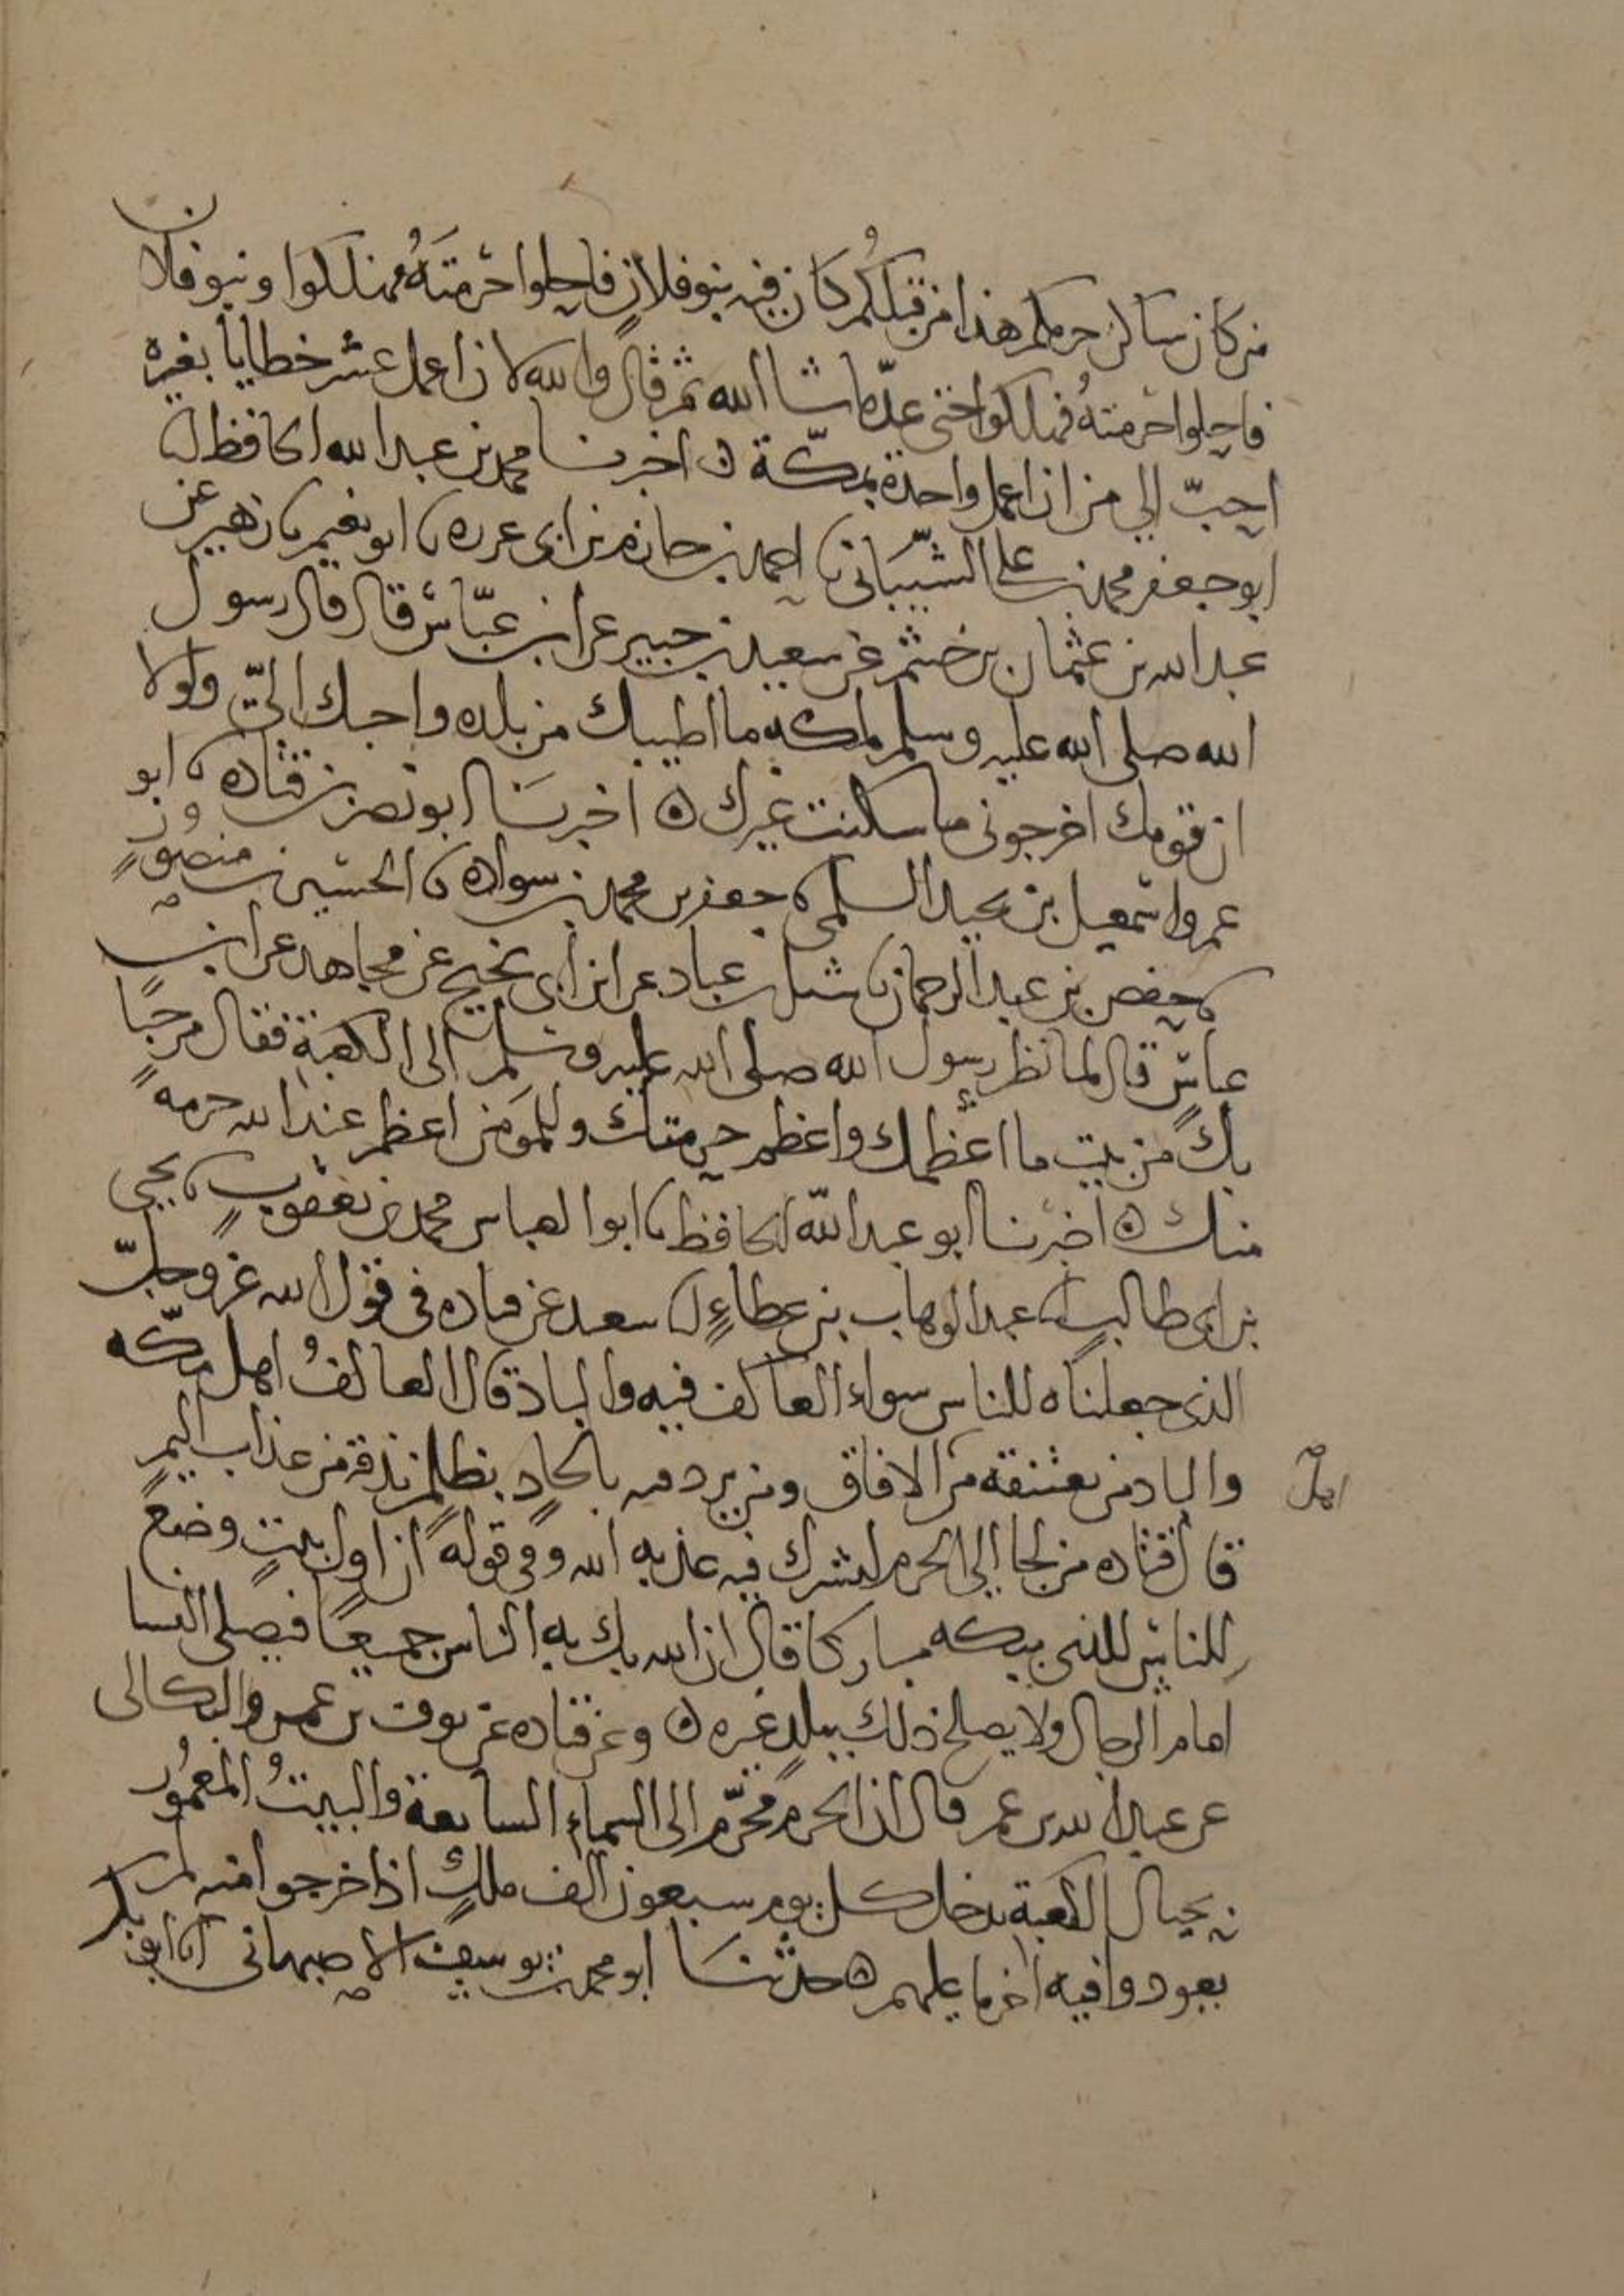 من كان ساكن حرمكم هذا من قبلكم كان فيه بنو فلان فاحلوا حرمته فهلكوا وبنو فلان
فاحلوا حرمته فهلكوا حتى عد ما شا الله ثم قال والله لان اعمل عشر خطايا بغيره
احب الي من ان اعمل واحدة بمكة ه اخبرنا محمد بن عبد الله الحافظ انا
ابو جعفر محمد بن علي الشيباني نا احمد بن حازم بن ابى غرزه نا ابو نعيم نا زهير عن
عبد الله بن عثمان بن خثيم عن سعيد بن جبير عن ابن عباس قال قال رسول
الله صلى الله عليه وسلم لمكه ما اطيبك من بلده واحبك الي ولولا
ان قومك اخرجونى ما سكنت غيرك ه اخبرنا ابو نصر بن قتاده نا ابو
عمرو اسمعيل بن نجيد السلمى نا جعفر بن محمد بن سواده نا الحسين بن منصور
نا حفص بن عبد الرحمان نا شبل بن عباد عن ابن ابى نجيح عن مجاهد عن ابن
عباس قال لما نظر رسول الله صلى الله عليه وسلم الى الكعبة فقال مرحبًا
بك من بيت ما اعظمك واعظم حرمتك وللمومن اعظم عند الله حرمه
منك ه اخبرنا ابو عبد الله الحافظ نا ابو العباس محمد بن يعقوب نا يحيى
بن ابى طالب نا عبد الوهاب بن عطاء انا سعيد عن قتاده فى قول الله عز وجل
الذى جعلناه للناس سواء العاكف فيه والباد قال العاكف اهل مكه
والباد من يعتنقه من الافاق ومن يرد فيه بالحاد بظلم نذقه من عذاب اليم
اهل
قال قتاده من لجا الى الحرم ليشرك فيه عذبه الله وفى قوله ان اول بيت وضع
للناس للذى ببكه مباركا قال ان الله بك به الناس جميعا فيصلى النسا
امام الرجال ولا يصلح ذلك ببلد غيره ه وعن قتاده عن نوف بن عمرو البكالى
عن عبد الله بن عمر قال ان الحرم محرم الى السماء السابعة والبيت المعمور
بحيال الكعبة يدخل كل يوم سبعون الف ملك اذا خرجوا منه لم
يعودوا فيه اخر ما عليهم ه حدثنا ابو محمد بن يوسف الاصبهانى انا ابو بكر